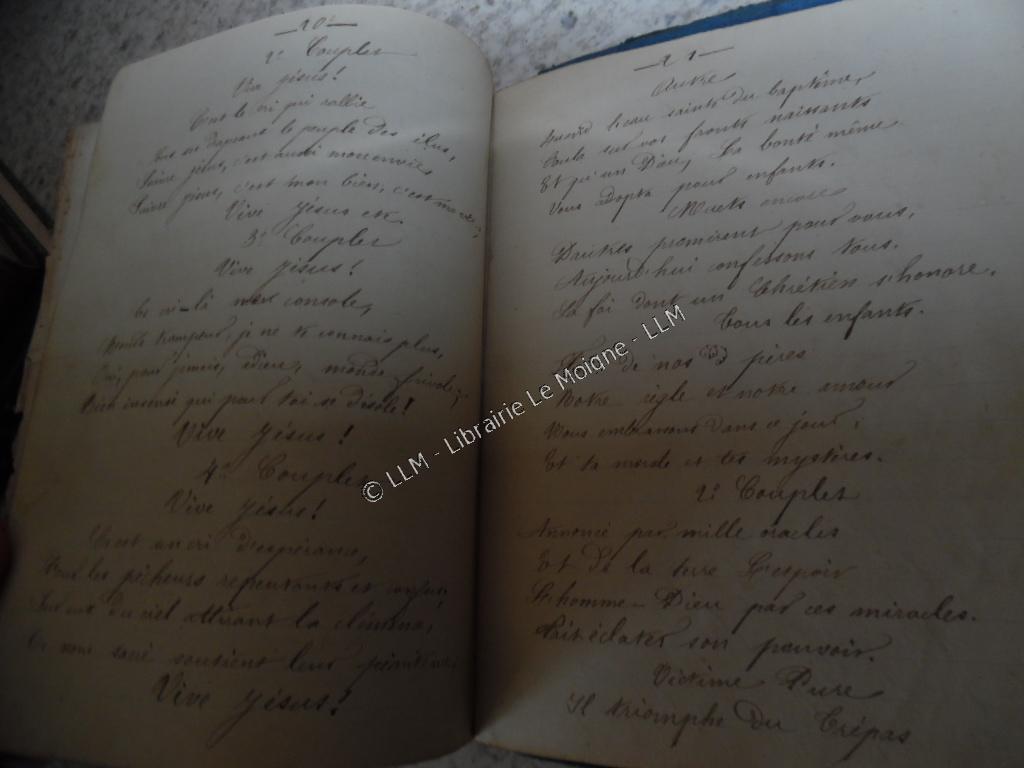 10
2e Couplet
Vive Jésus!
C'est le cri qui rallie
Sous ses drapeaux le peuple des élus,
Suivre Jésus, c'est aussi mon envie
Suivre Jésus, c'est mon bien, c'est ma vie;
Vive Jésus etc
3e Couplet
Vive Jésus!
Ce cri-là me console,
Monde trompeur, je ne te connais plus,
Oui, pour jamais, adieu, monde frivole,
Bien insensé qui pour toi se désole!
Vive Jésus!
4e Couplet
Vive Jésus!
C'est un cri d'espérance,
Pour les pécheurs repentants et confus,
Sur eux du ciel attirant la clémence,
Ce nom sacré soutient leur pénitence,
Vive Jésus!
11
Autre
Quand l'eau sainte du baptême,
Coula sur vos fronts naissants
Et qu'un Dieu, la bonté même
Vous adopta pour enfants.
Muets encore
D'autres promirent pour vous,
Aujourd'hui confessons tous.
La foi dont un Chrétien s'honore.
Tous les enfants.
de nos pères
Notre règle et notre amour
Nous embrassons dans ce jour,
Et ta morale et tes mystères.
2e Couplet
Annoncé par mille oracles
Et de la terre l'espoir
L'homme-Dieu par ces miracles.
Fait éclater son pouvoir.
Victime Pure
Il triomphe du Trépas
© LLM - Librairie Le Moigne - LLM